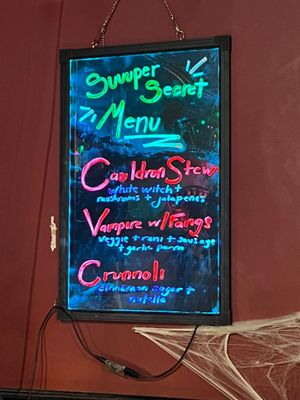 Suuuper
Secret
Menu
Cauldron Stew
white witch +
mushrooms + jalapenos
Vampire w/Fangs
veggie + roni + sausage
+ garlic parm
Crunnoli
cinnamon sugar +
nutella